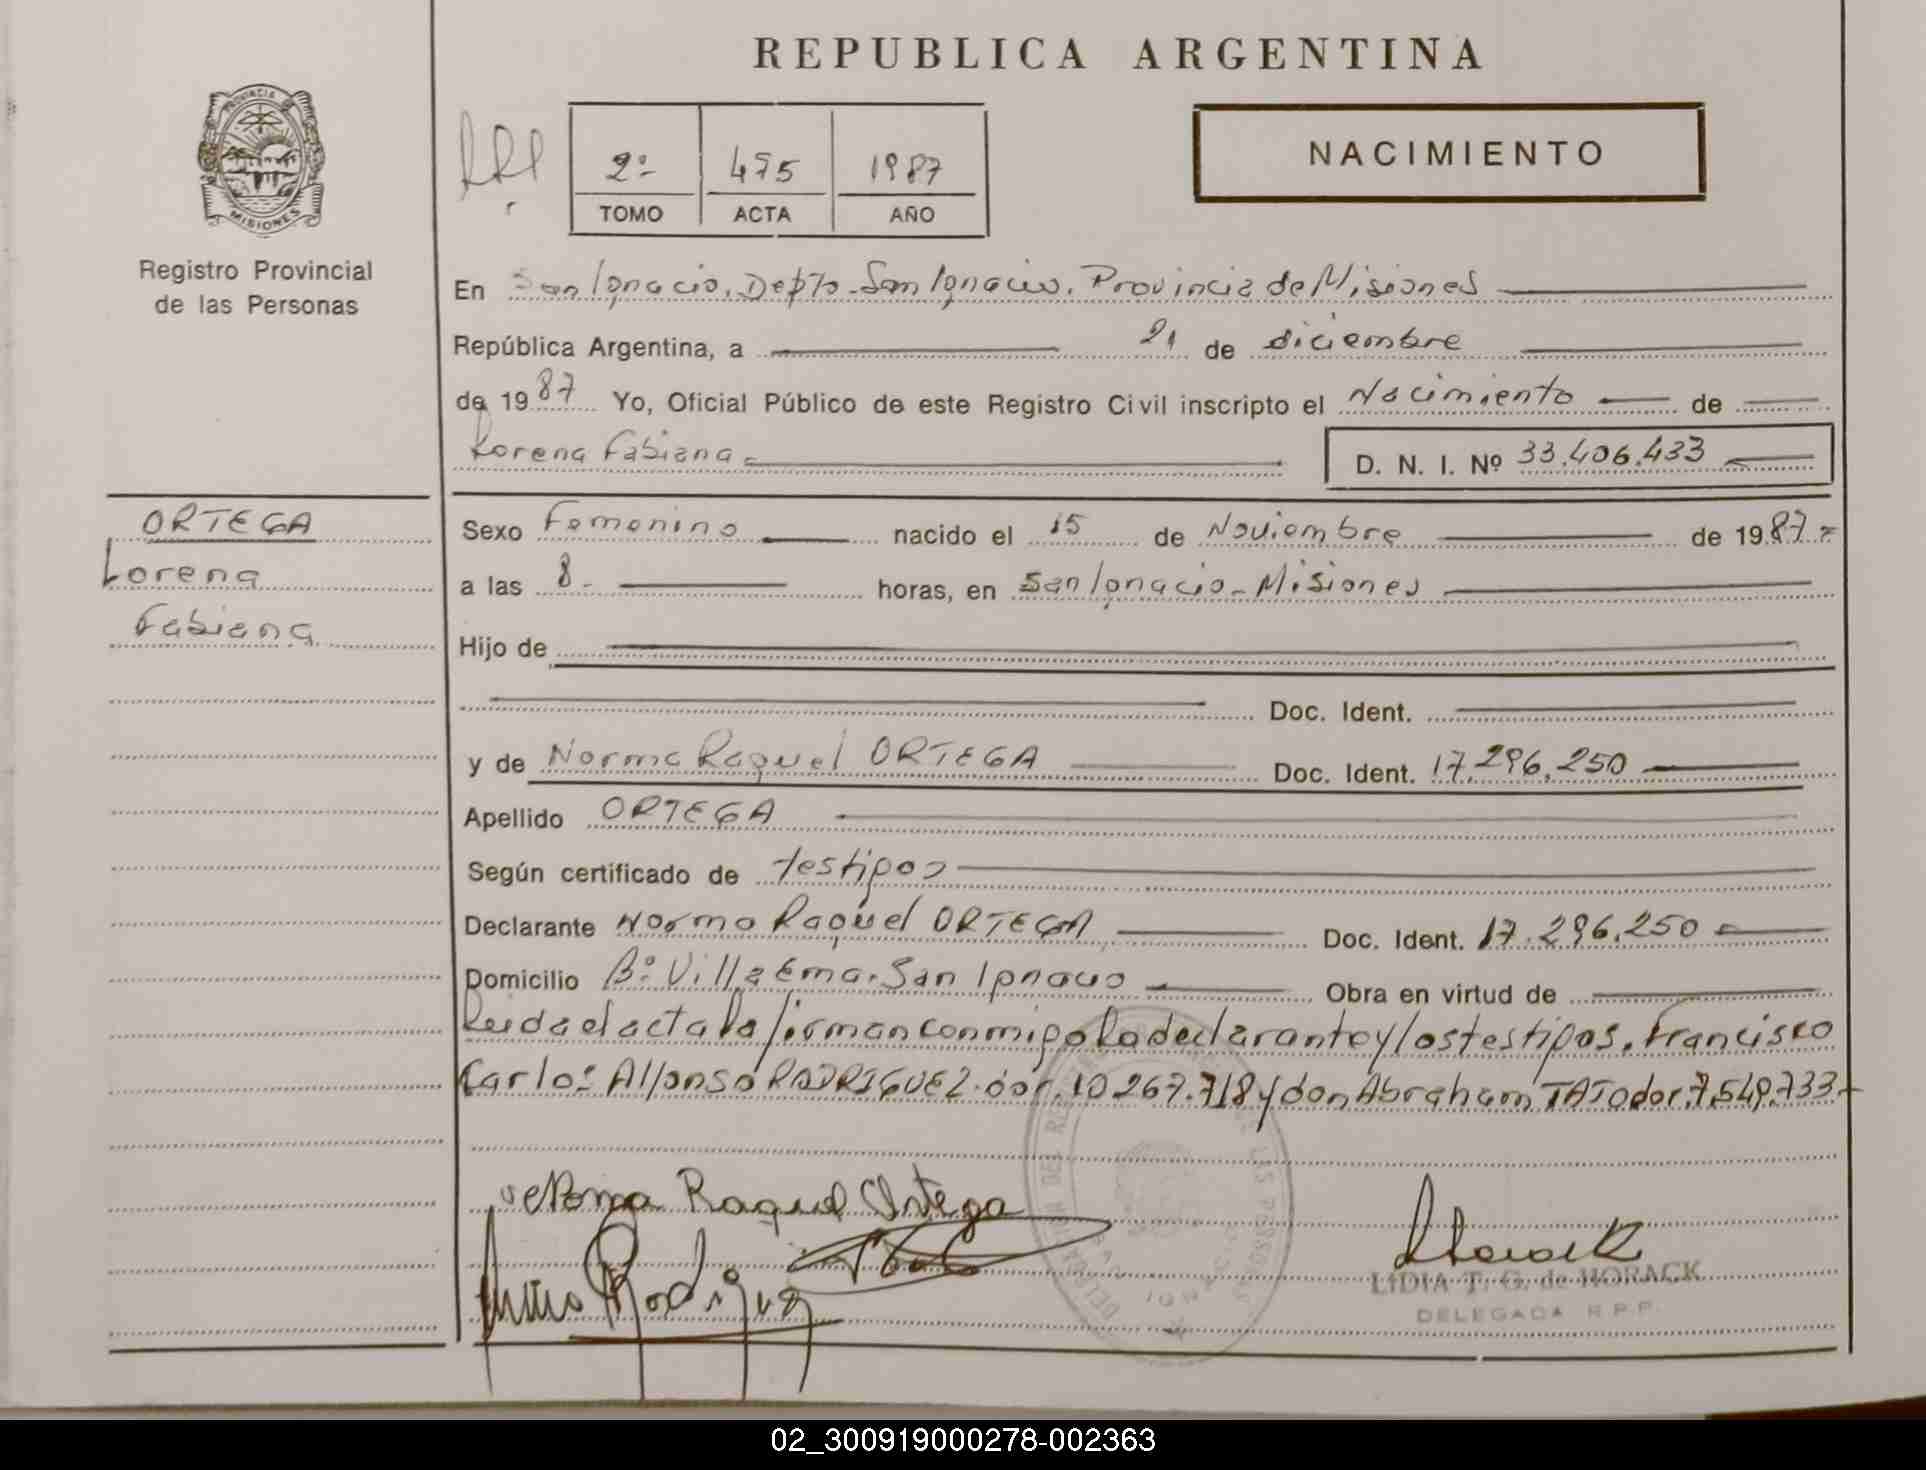 REPUBLICA ARGENTINA
PROVINCIA
MISIONES
Registro Provincial
de las Personas
2º
475
1987
TOMO
ACTA
AÑO
NACIMIENTO
En San Ignacio, Depto. San Ignacio. Provincia de Misiones
República Argentina, a 21 de diciembre
de 1987 Yo, Oficial Público de este Registro Civil inscripto el Nacimiento de
Lorena Fabiana
D. N. I. Nº 33.406.433
ORTEGA
Lorena
Fabiana
Sexo Femenino nacido el 15 de Noviembre de 1987
a las 8. horas, en San Ignacio - Misiones
Hijo de
Doc. Ident.
y de Norma Raquel ORTEGA Doc. Ident. 17.296.250
Apellido ORTEGA
Según certificado de testigos
Declarante Norma Raquel ORTEGA Doc. Ident. 17.296.250
Domicilio Bº Villa Ema. San Ignacio Obra en virtud de
Leida el acta la firman conmigo la declarante y los testigos, Francisco
Carlos Alfonso RODRIGUEZ 10.267.718 y don Abraham 7.549.733
Norma Raquel Ortega
Rodriguez
Horack
LIDIA T. G. de HORACK
DELEGADA R.P.P.
02_300919000278-002363